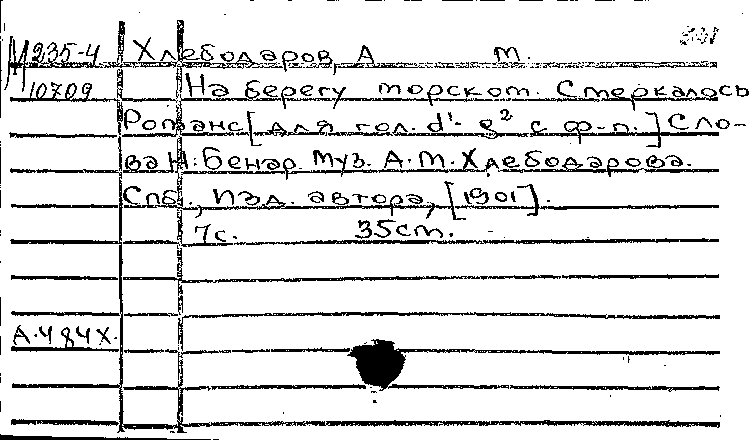 М 235-4 Хлебодаров, А М.
10709 На берегу морском. Смеркалось
Романс [для гол. d¹- g² с ф-п.] Сло-
ва Н. Бенар Муз. А.М.Хлебодарова.
Спб., Изд. автора, [1901].
7с. 35см.
А.484Х.